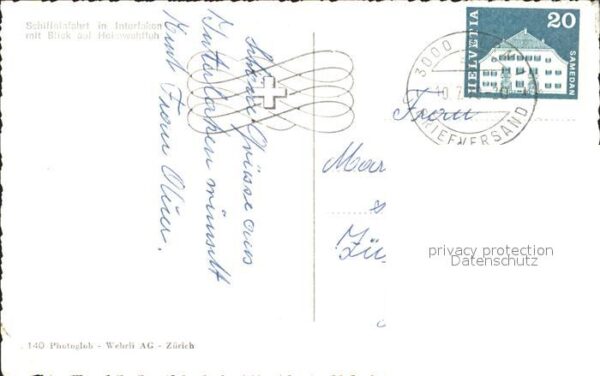 Schiffleinfahrt in Interlaken
mit Blick auf Heimwehfluh
Schöne Grüsse aus
Interlaken wünscht
Frau
HELVETIA
20
SAMEDAN
3000
10.7.
BRIEFVERSAND
Frau
Mar
Zü
privacy protection
Datenschutz
140 Photoglob - Wehrli AG - Zürich